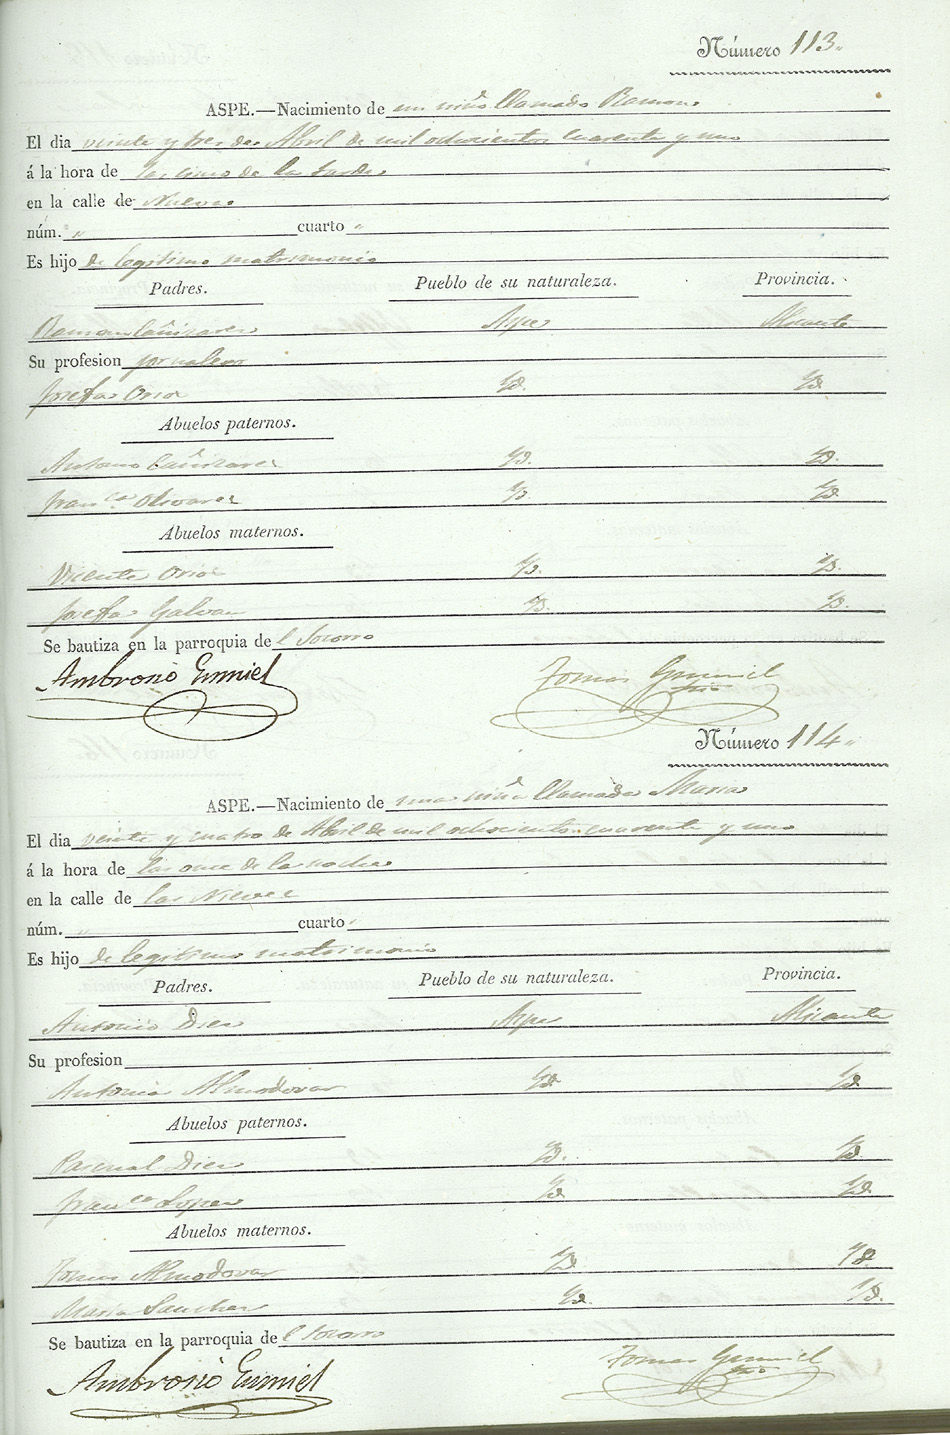 Número 113.
ASPE.—Nacimiento de un niño llamado Ramon
El dia veinte y tres de Abril de mil ochocientos cuarenta y uno
á la hora de las cinco de la tarde
en la calle de Nueva
núm. " cuarto "
Es hijo de legitimo matrimonio
Padres. Pueblo de su naturaleza. Provincia.
Ramon Cañizares Aspe Alicante
Su profesion jornalero
Josefa Id. Id.
Abuelos paternos.
Antonio Cañizares Id. Id.
Fran.ca Olivares Id. Id.
Abuelos maternos.
Vicente Id. Id.
Josefa Galvan Id. Id.
Se bautiza en la parroquia de l Socorro
Ambrosio
Tomas
Número 114.
ASPE.—Nacimiento de una niña llamada Maria
El dia veinte y cuatro de Abril de mil ochocientos cuarenta y uno
á la hora de las once de la noche
en la calle de las Nieves
núm. " cuarto "
Es hijo de legitimo matrimonio
Padres. Pueblo de su naturaleza. Provincia.
Antonio Diez Aspe Alicante
Su profesion
Antonia Almodovar Id. Id.
Abuelos paternos.
Pascual Diez Id. Id.
Fran.ca Lopez Id. Id.
Abuelos maternos.
Tomas Almodovar Id. Id.
Maria Sanchez Id. Id.
Se bautiza en la parroquia de l Socorro
Ambrosio
Tomas